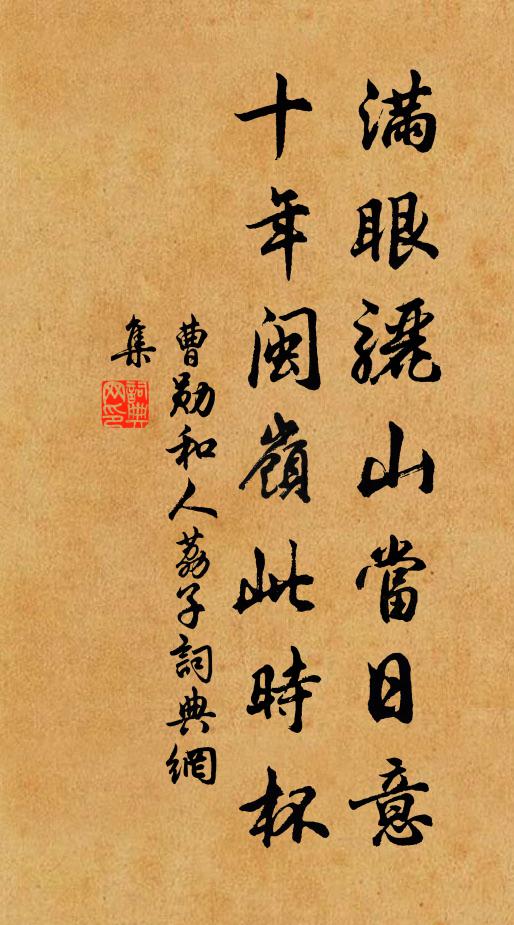 滿眼驪山當日意
十年閩嶺此時杯
曹勛和人荔子詞典網
集
詞典網印